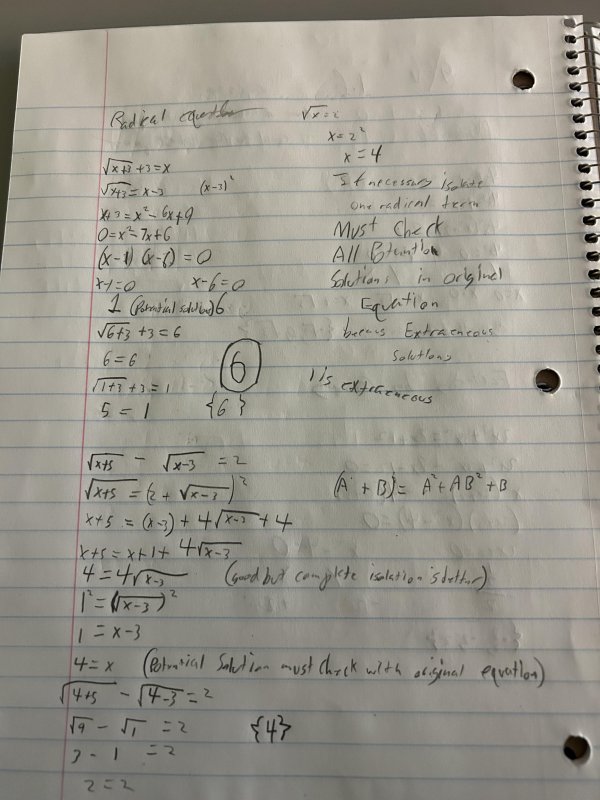 Radical
√x = 2
x = 2²
x = 4
√x+3 + 3 = x
√x+3 = x-3 (x-3)²
x+3 = x² - 6x+9
0 = x² - 7x+6
(x-1) (x-6) = 0
x-1=0 x-6=0
1 (Potential solution) 6
√6+3 + 3 = 6
6 = 6
√1+3 + 3 = 1
5 = 1 {6}
6
If necessary isolate
one radical term
Must Check
All
Solutions in original
Equation
Extraeneous
Solutions
1 is extraeneous
√x+5 - √x-3 = 2
√x+5 = (2 + √x-3)² (A + B)² = A² + AB² + B
x+5 = (x-3) + 4√x-3 + 4
x+5 = x+1 + 4√x-3
4 = 4√x-3 (Good but complete isolation is better)
1² = (√x-3)²
1 = x-3
4 = x (Potential Solution must check with original equation)
√4+5 - √4-3 = 2
√9 - √1 = 2 {4}
3 - 1 = 2
2 = 2